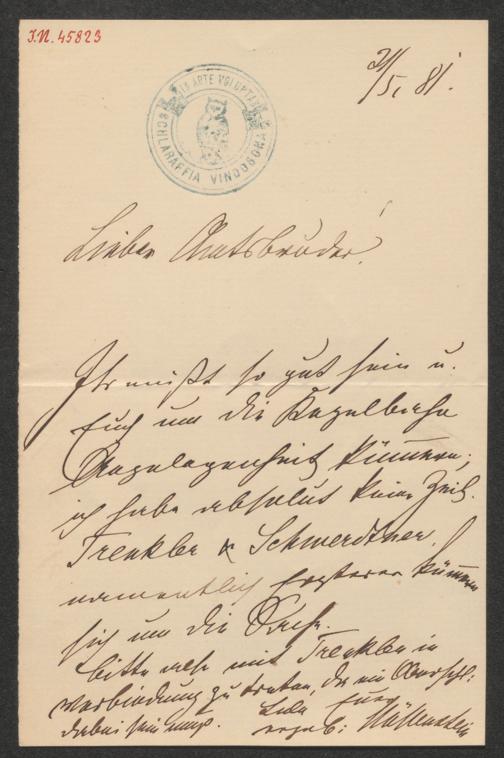 J.N. 45823
21/5. 81.
IN ARTE VOLUPTAS
SCHLARAFFIA VINDOBONA
Lieber Amtsbruder!
Ihr müßt so gut sein u.
Euch um die Kegelbahn
Angelegenheit kümmern;
ich habe absolut keine Zeit.
Trenkler & Schwerdtner,
namentlich ersterer kümmern
sich um die Sache.
bitte also mit Trenkler in
Verbindung zu treten, da ein
dabei sein muß.
Euer
ergeb: